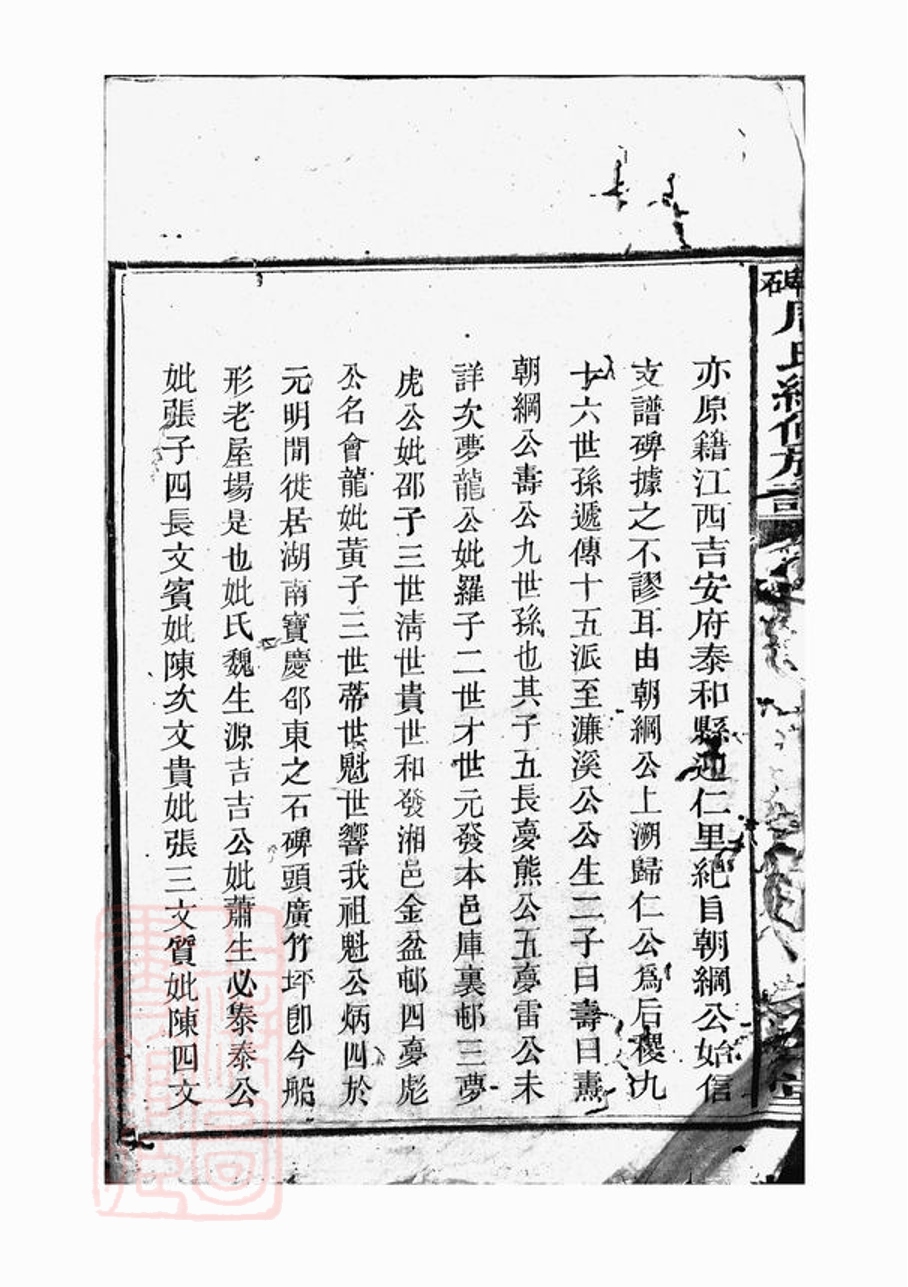 周氏續修族譜
亦原籍江西吉安府泰和縣迎仁里紀自朝綱公始信
支譜碑據之不謬耳由朝綱公上溯歸仁公爲后稷九
十六世孫遞傳十五派至濂溪公公生二子曰壽曰燾
朝綱公壽公九世孫也其子五長夢熊公五夢雷公未
詳次夢龍公妣羅子二世才世元發本邑庫裏邨三夢
虎公妣邵子三世淸世貴世和發湘邑金盆邨四夢彪
公名會龍妣黃子三世蒂世魁世響我祖魁公炳四於
元明間徙居湖南寶慶邵東之石碑頭廣竹坪卽今船
形老屋場是也妣氏魏生源吉吉公妣蕭生必泰泰公
妣張子四長文賓妣陳次文貴妣張三文質妣陳四文